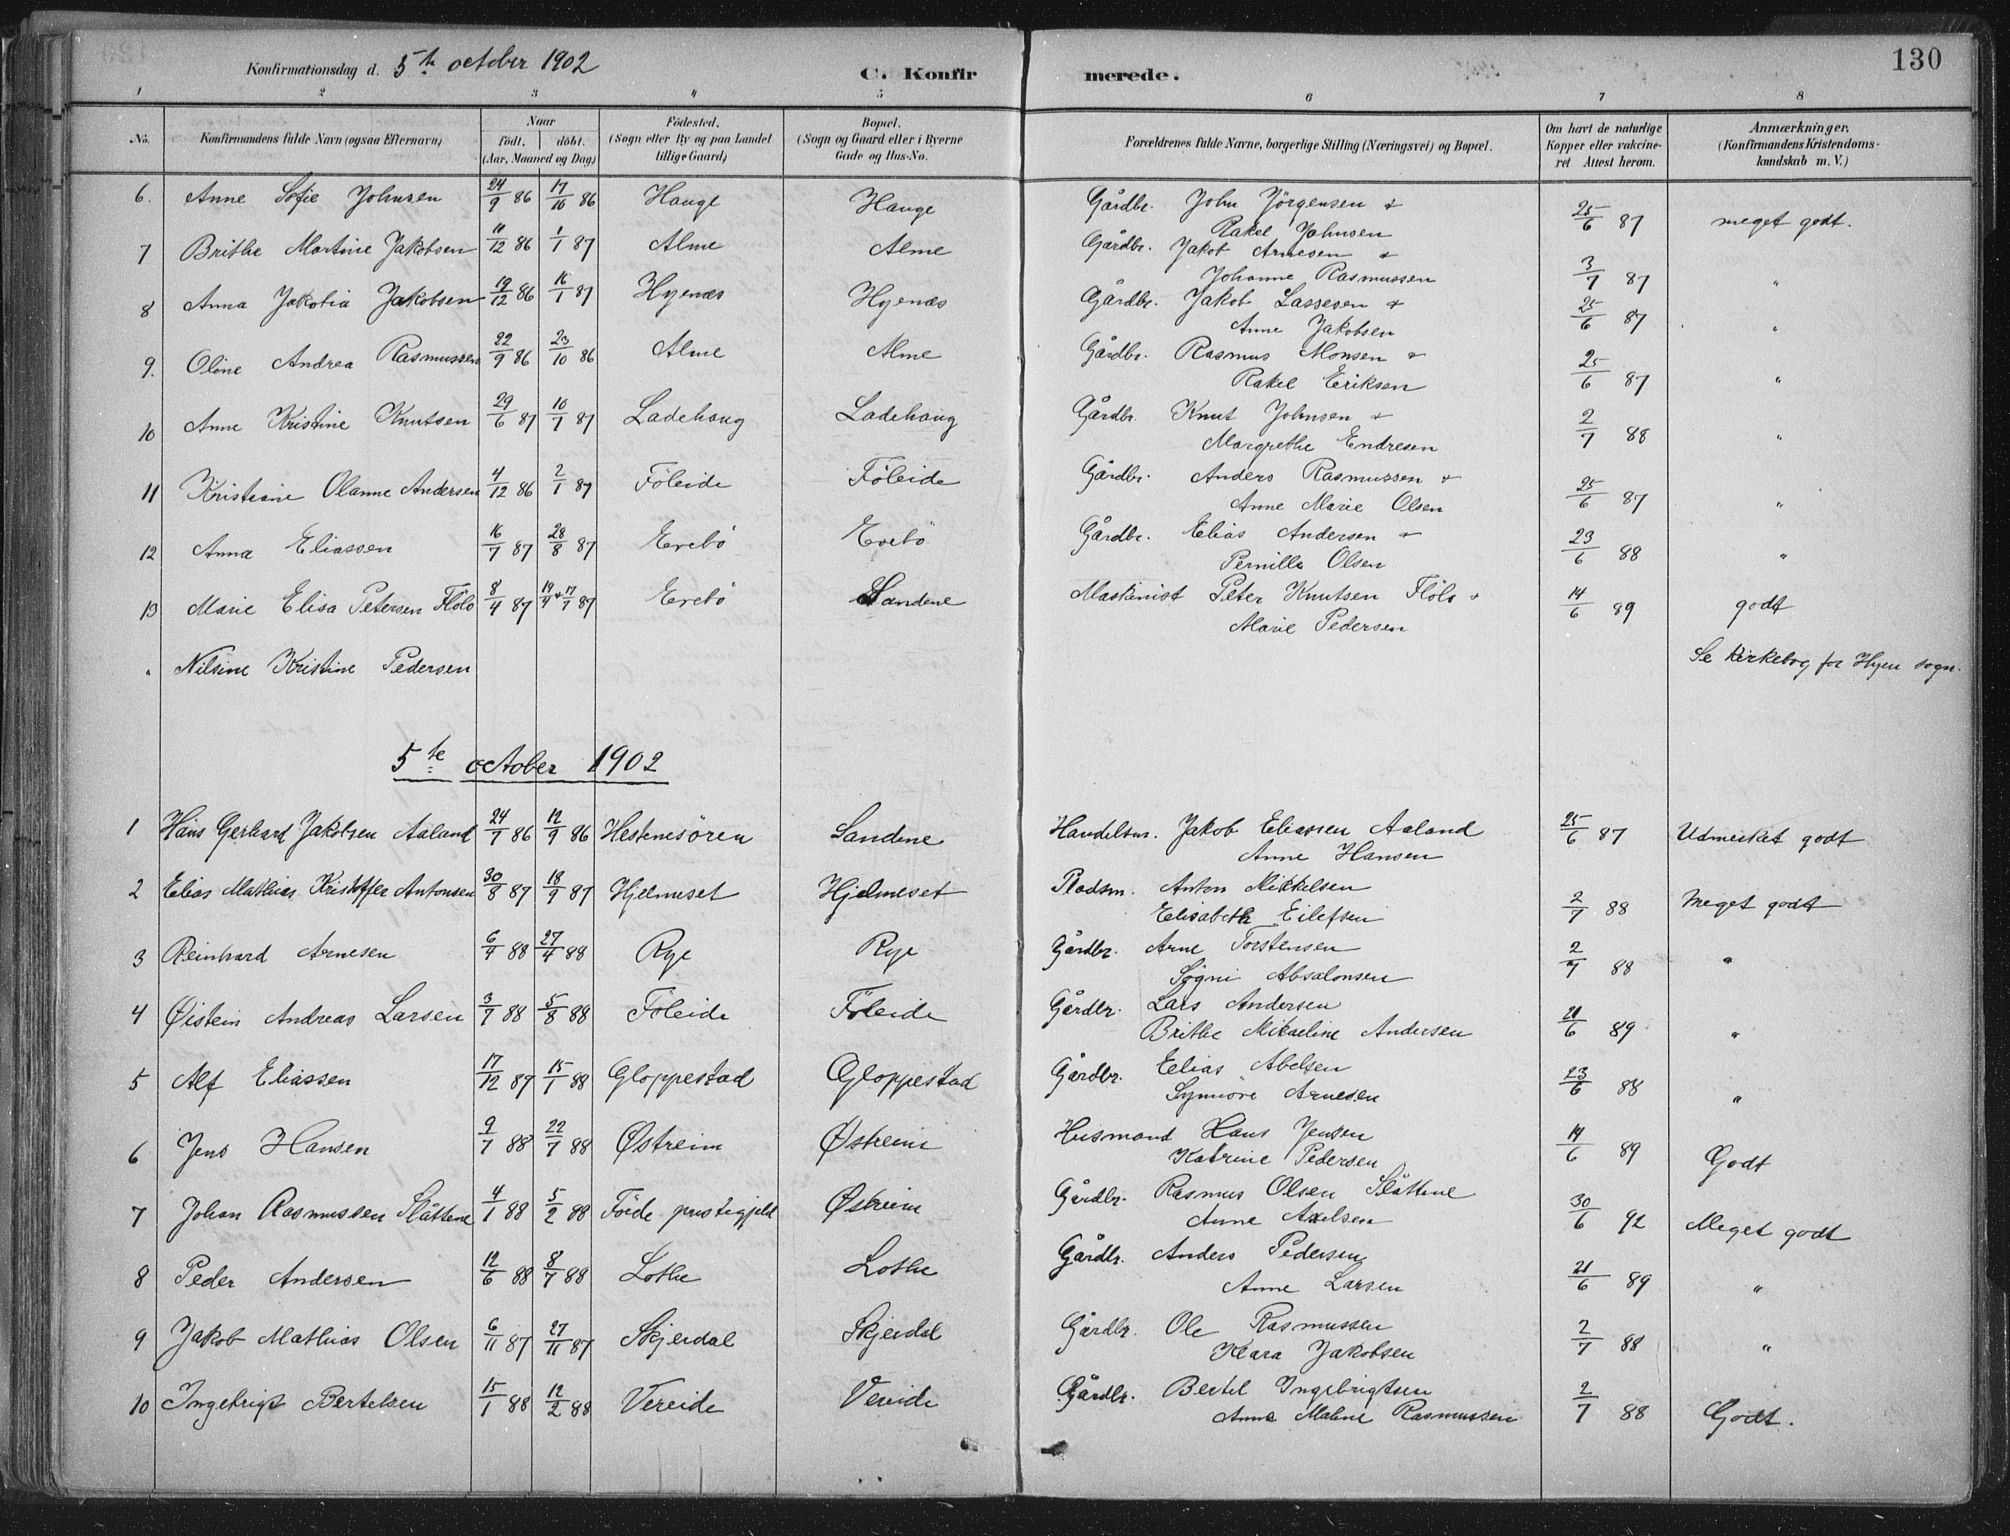 130
Konfirmationsdag d. 5te october 1902 C. Konfir merede.
1 2 3 4 5 6 7 8
No. Konfirmandens fulde Navn (ogsaa Efternavn) Naar födt. döbt. (Aar, Maaned og Dag) Födested. (Sogn eller By og paa Landet tillige Gaard) Bopæl. (Sogn og Gaard eller i Byerne Gade og Hus-No. Forældrenes fulde Navne, borgerlige Stilling (Næringsvei) og Bopæl. Om havt de naturlige Kopper eller vakcineret Attest herom. Anmærkninger. (Konfirmandens Kristendomskundskab m. V.)
6. Anne Sofie Johnsen 24/9 86 17/10 86 Hauge Hauge Gårdbr. John Jörgensen + 25/6 87 meget godt.
Rakel Johnsen
7 Brithe Martine Jakobsen 10/12 86 1/1 87 Alme Alme Gårdbr. Jakob Arnesen + 3/7 87 "
Johanne Rasmussen
8 Anna Jakobia Jakobsen 19/12 86 16/1 87 Hyenæs Hyenæs Gårdbr. Jakob Lassesen + 25/6 87 "
Anne Jakobsen
9. Oline Andrea Rasmussen 22/9 86 23/10 86 Alme Alme Gårdbr. Rasmus Monsen + 25/6 87 "
Rakel Eriksen
10 Anne Kristine Knutsen 29/6 87 10/7 87 Ladehaug Ladehaug Gårdbr. Knut Johnsen + 2/7 88 "
Margrethe Endresen
11 Kristiane Olanne Andersen 4/12 86 2/1 87 Föleide Föleide Gårdbr. Anders Rasmussen + 25/6 87 "
Anne Marie Olsen
12 Anna Eliassen 16/7 87 28/8 87 Evebö Evebö Gårdbr. Elias Andersen + 23/6 88 "
Pernille Olsen
13 Marie Elisa Petersen Flölo 8/4 87 19/4 + 17/7 87 Evebö Sandene Maskinist Peter Knutsen Flölo + 14/6 89 godt
Marie Pedersen
" Nilsine Kristine Pedersen Se kirkebog for Hyen sogn.
5te october 1902
1 Hans Gerhard Jakobsen Aaland 24/7 86 12/9 86 Hestenesören Sandene Handelsm. Jakob Eliassen Aaland 25/6 87 Udmerket godt
Anne Hansen
2 Elias Mathias Kristoffer Antonsen 30/8 87 18/9 87 Hjelmeset Hjelmeset Pladsm. Anton Mikkelsen 2/7 88 Meget godt
Elisabeth Eilefsen
3 Reinhard Arnesen 6/4 88 27/4 88 Rye Rye Gårdbr. Arne Torstensen 2/7 88 "
Søgni Absalonsen
4 Øistein Andreas Larsen 3/7 88 5/8 88 Föleide Föleide Gårdbr. Lars Andersen 21/6 89 "
Brithe Mikaeline Andersen
5 Alf Eliassen 17/12 87 15/1 88 Gloppestad Gloppestad Gårdbr. Elias Abelsen 23/6 88 "
Synnöve Arnesen
6 Jens Hansen 9/7 88 22/7 88 Østreim Østreim Husmand Hans Jensen 14/6 89 Godt
Katrine Pedersen
7 Johan Rasmussen Slåttene 4/1 88 5/2 88 Föide prestegjeld Østreim Gårdbr. Rasmus Olsen Slåttene 30/6 92 Meget godt
Anne Axelsen
8 Peder Andersen 12/6 88 8/7 88 Lothe Lothe Gårdbr. Anders Pedersen 21/6 89 "
Anne Larsen
9 Jakob Mathias Olsen 6/11 87 27/11 87 Skjerdal Skjerdal Gårdbr. Ole Rasmussen 2/7 88 "
Klara Jakobsen
10 Ingebrigt Bertelsen 15/1 88 12/2 88 Vereide Vereide Gårdbr. Bertel Ingebrigtsen 2/7 88 Godt.
Anne Maline Rasmussen